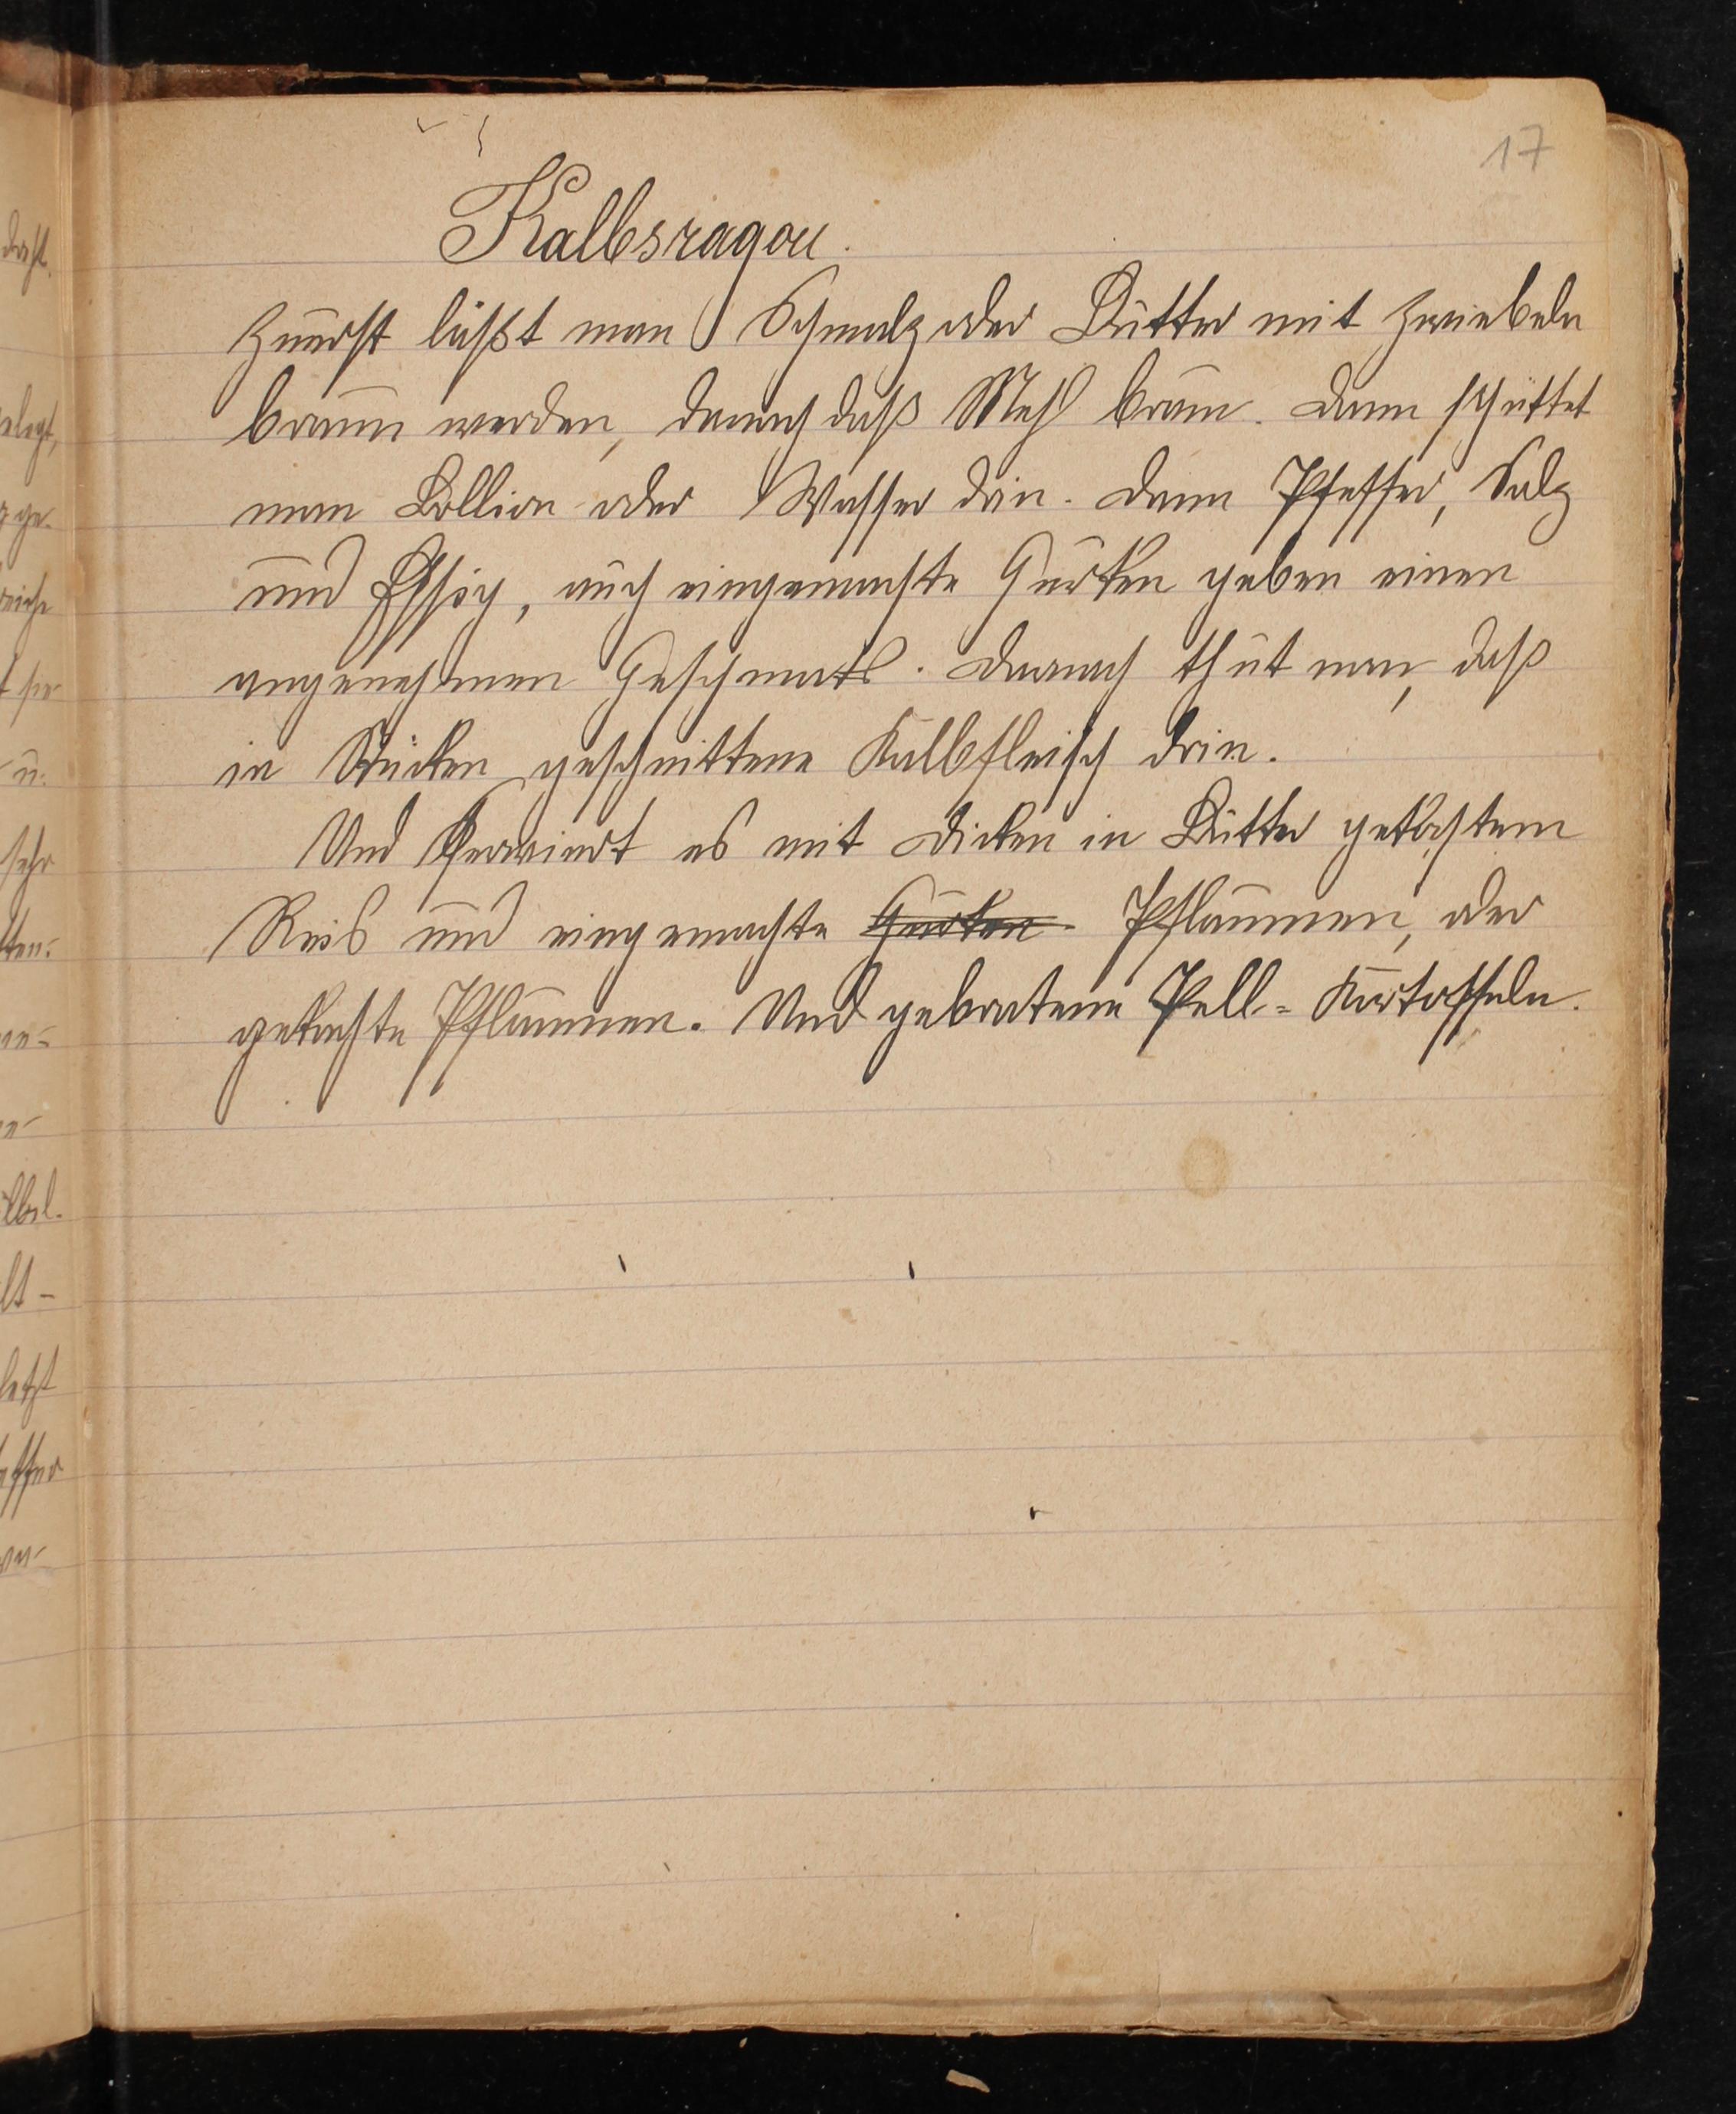 17
Kalbsragou.
Zuerst läßt man Schmalz oder Butter mit Zwiebeln
braun werden, danach daß Mehl braun. Dann schüttet
man Bollion oder Wasser drin. Dann Pfeffer, Salz
und Essig, auch eingemachte Gurken geben einen
angenehmen Geschmack. Danach thut man, daß
in Stücken geschnittene Kalbfleisch drin.
Und serwiert es mit dicken in Butter gekochtem
Reis und eingemachte Gurken Pflaumen, oder
gekochte Pflaumen. Und gebratene Pell-Kartoffeln.